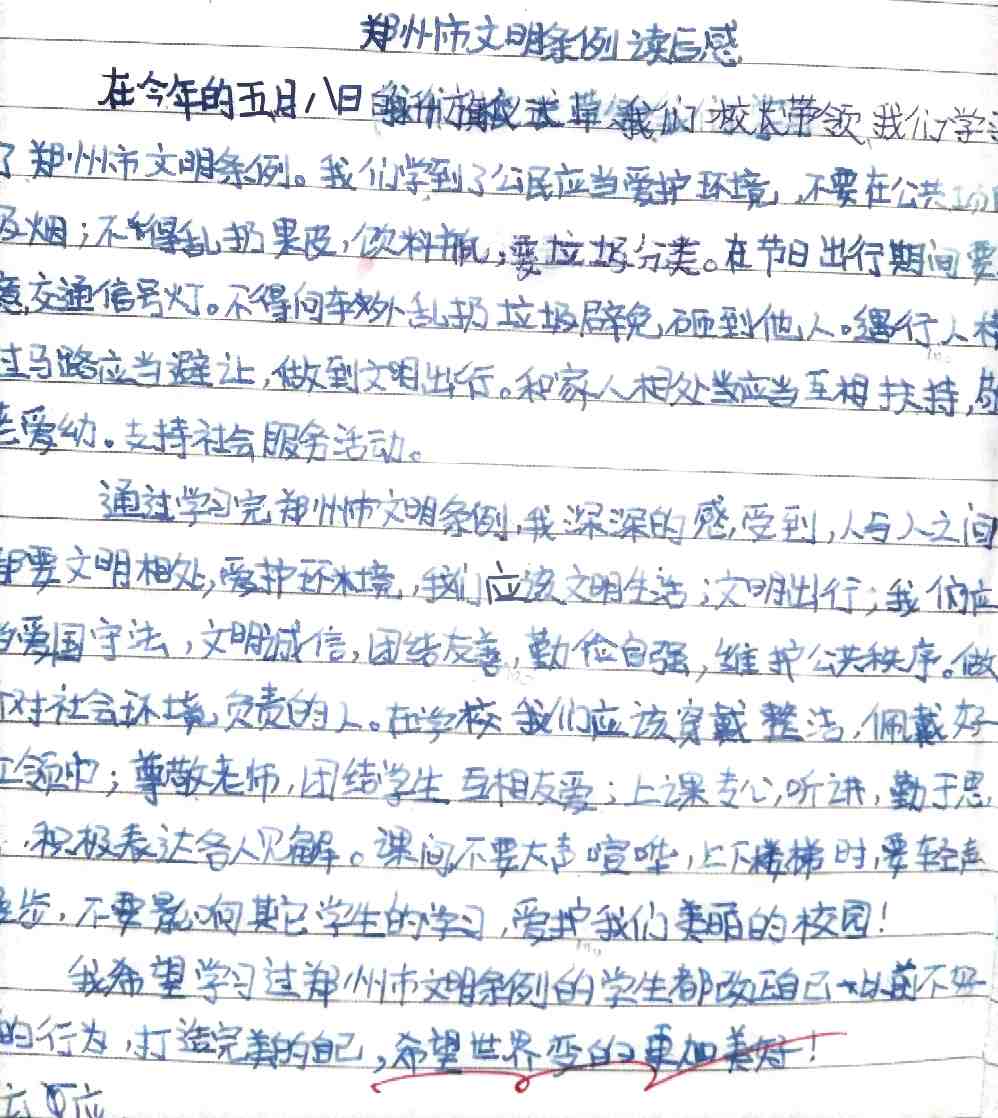 郑州市文明条例读后感
在今年的五月八日我们校长带领我们学
了郑州市文明条例。我们学到了公民应当爱护环境,不要在公共场
吸烟;不得乱扔果皮,饮料瓶,要垃圾分类。在节日出行期间要
意交通信号灯。不得向车外乱扔垃圾辟免砸到他人。遇行人横
过马路应当避让,做到文明出行。和家人相处当应当互相扶持,敬
老爱幼。支持社会服务活动。
通过学习完郑州市文明条例,我深深的感受到,人与人之间
都要文明相处,爱护环境,我们应该文明生活;文明出行;我们应
当爱国守法,文明诚信,团结友善,勤俭自强,维护公共秩序。做
对社会环境负责的人。在学校我们应该穿戴整洁,佩戴好
红领巾;尊敬老师,团结学生互相友爱;上课专心听讲,勤于思
,积极表达各人见解。课间不要大声喧哗,上下楼梯时,要轻声
步,不要影响其它学生的学习,爱护我们美丽的校园!
我希望学习过郑州市文明条例的学生都改正自己以前不好
的行为,打造完美的自己,希望世界变的更加美好!